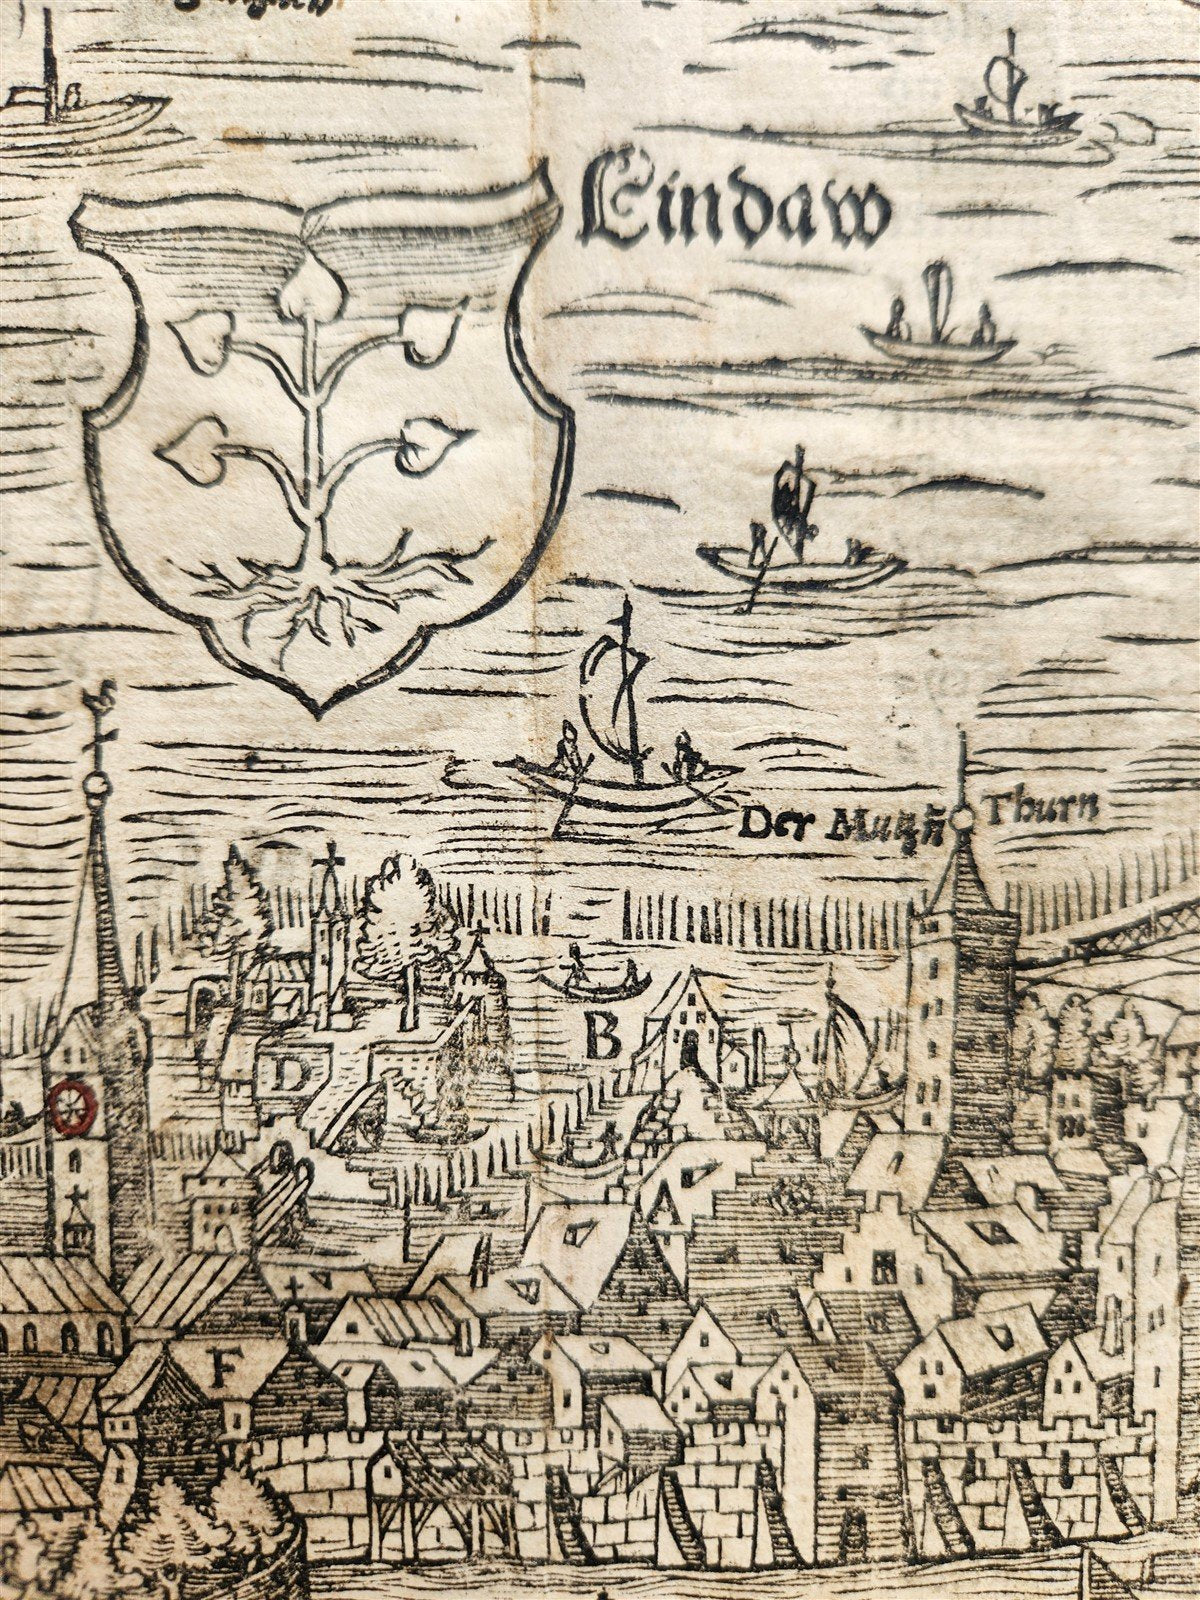 Lindaw
Der Mangñ Thurn
B
D
A
F